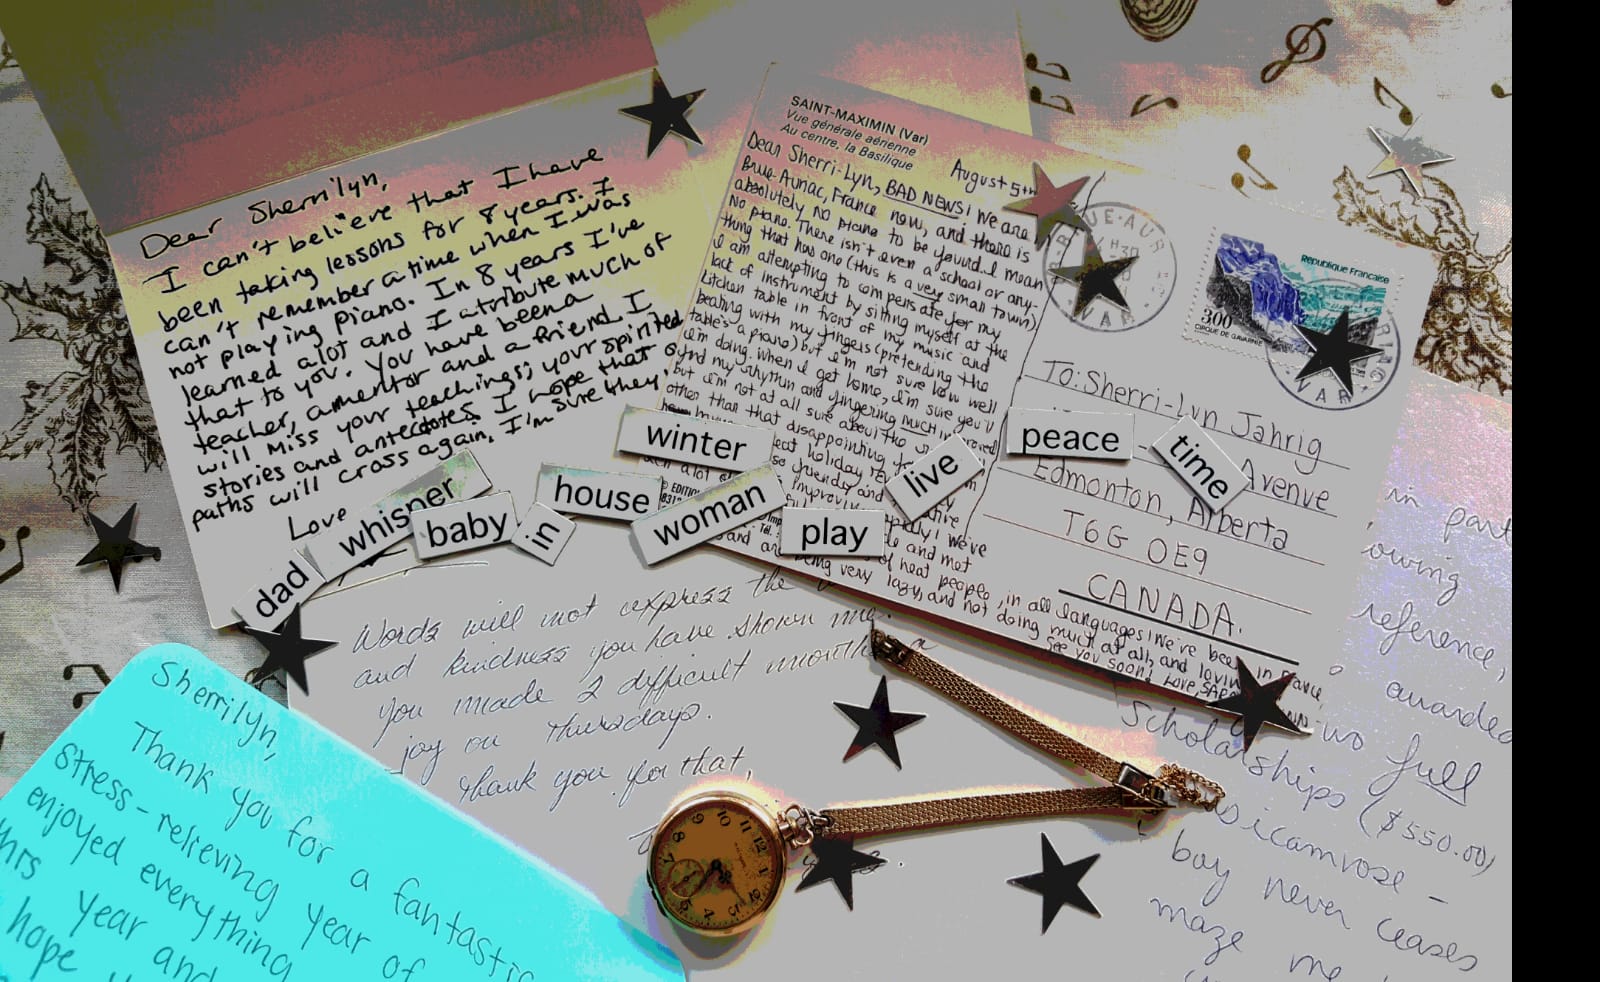 Dear Sherrilyn,
I can't believe that I have
been taking lessons for 8 years. I
can't remember a time when I was
not playing piano. In 8 years I've
learned alot and I atribute much of
that to you. You have been a
teacher, a mentor and a friend. I
will miss your teachings; your spirited
stories and antecdotes. I hope that
paths will cross again. I'm sure they
Love
SAINT-MAXIMIN (Var)
Vue générale aérienne
Au centre, la Basilique
August 5th
Dear Sherri-Lyn, BAD NEWS! We are
Brue-Auriac, France now, and there is
absolutely no piano to be found. I mean
No piano. There isn't even a school or any-
thing that has one (this is a very small town)
I am attempting to compensate for my
lack of instrument by sitting myself at the
kitchen table in front of my music and
beating with my fingers (pretending the
table's a piano) but I'm not sure how well
I'm doing. When I get home, I'm sure you'll
find my rhythm and fingering much improved
but I'm not at all sure about the
other than that disappointing
holiday
friendly and
improv
we've
and met
of neat people, in all languages! We've been in France
being very lazy, and not doing much at all, and lovin
See you soon! Love, SARA
RÉPUBLIQUE FRANÇAISE
300
CIRQUE DE GAVARNIE
BRUE-AURIAC
VAR
VAR
To: Sherri-Lyn Jahrig
Avenue
Edmonton, Alberta
T6G 0E9
CANADA.
winter
peace
time
live
whisper
baby
in
house
woman
play
dad
Words will not express the
and kindness you have shown me.
you made 2 difficult months a
joy on Thursdays.
Thank you for that,
Sherrilyn,
Thank you for a fantastic
stress-relieving year of
enjoyed everything
year and
hope
in part
owing
reference,
awarded
two full
Scholarships ($550.00)
Musicamrose -
boy never ceases
maze me
12
1
4
5
8
9
10